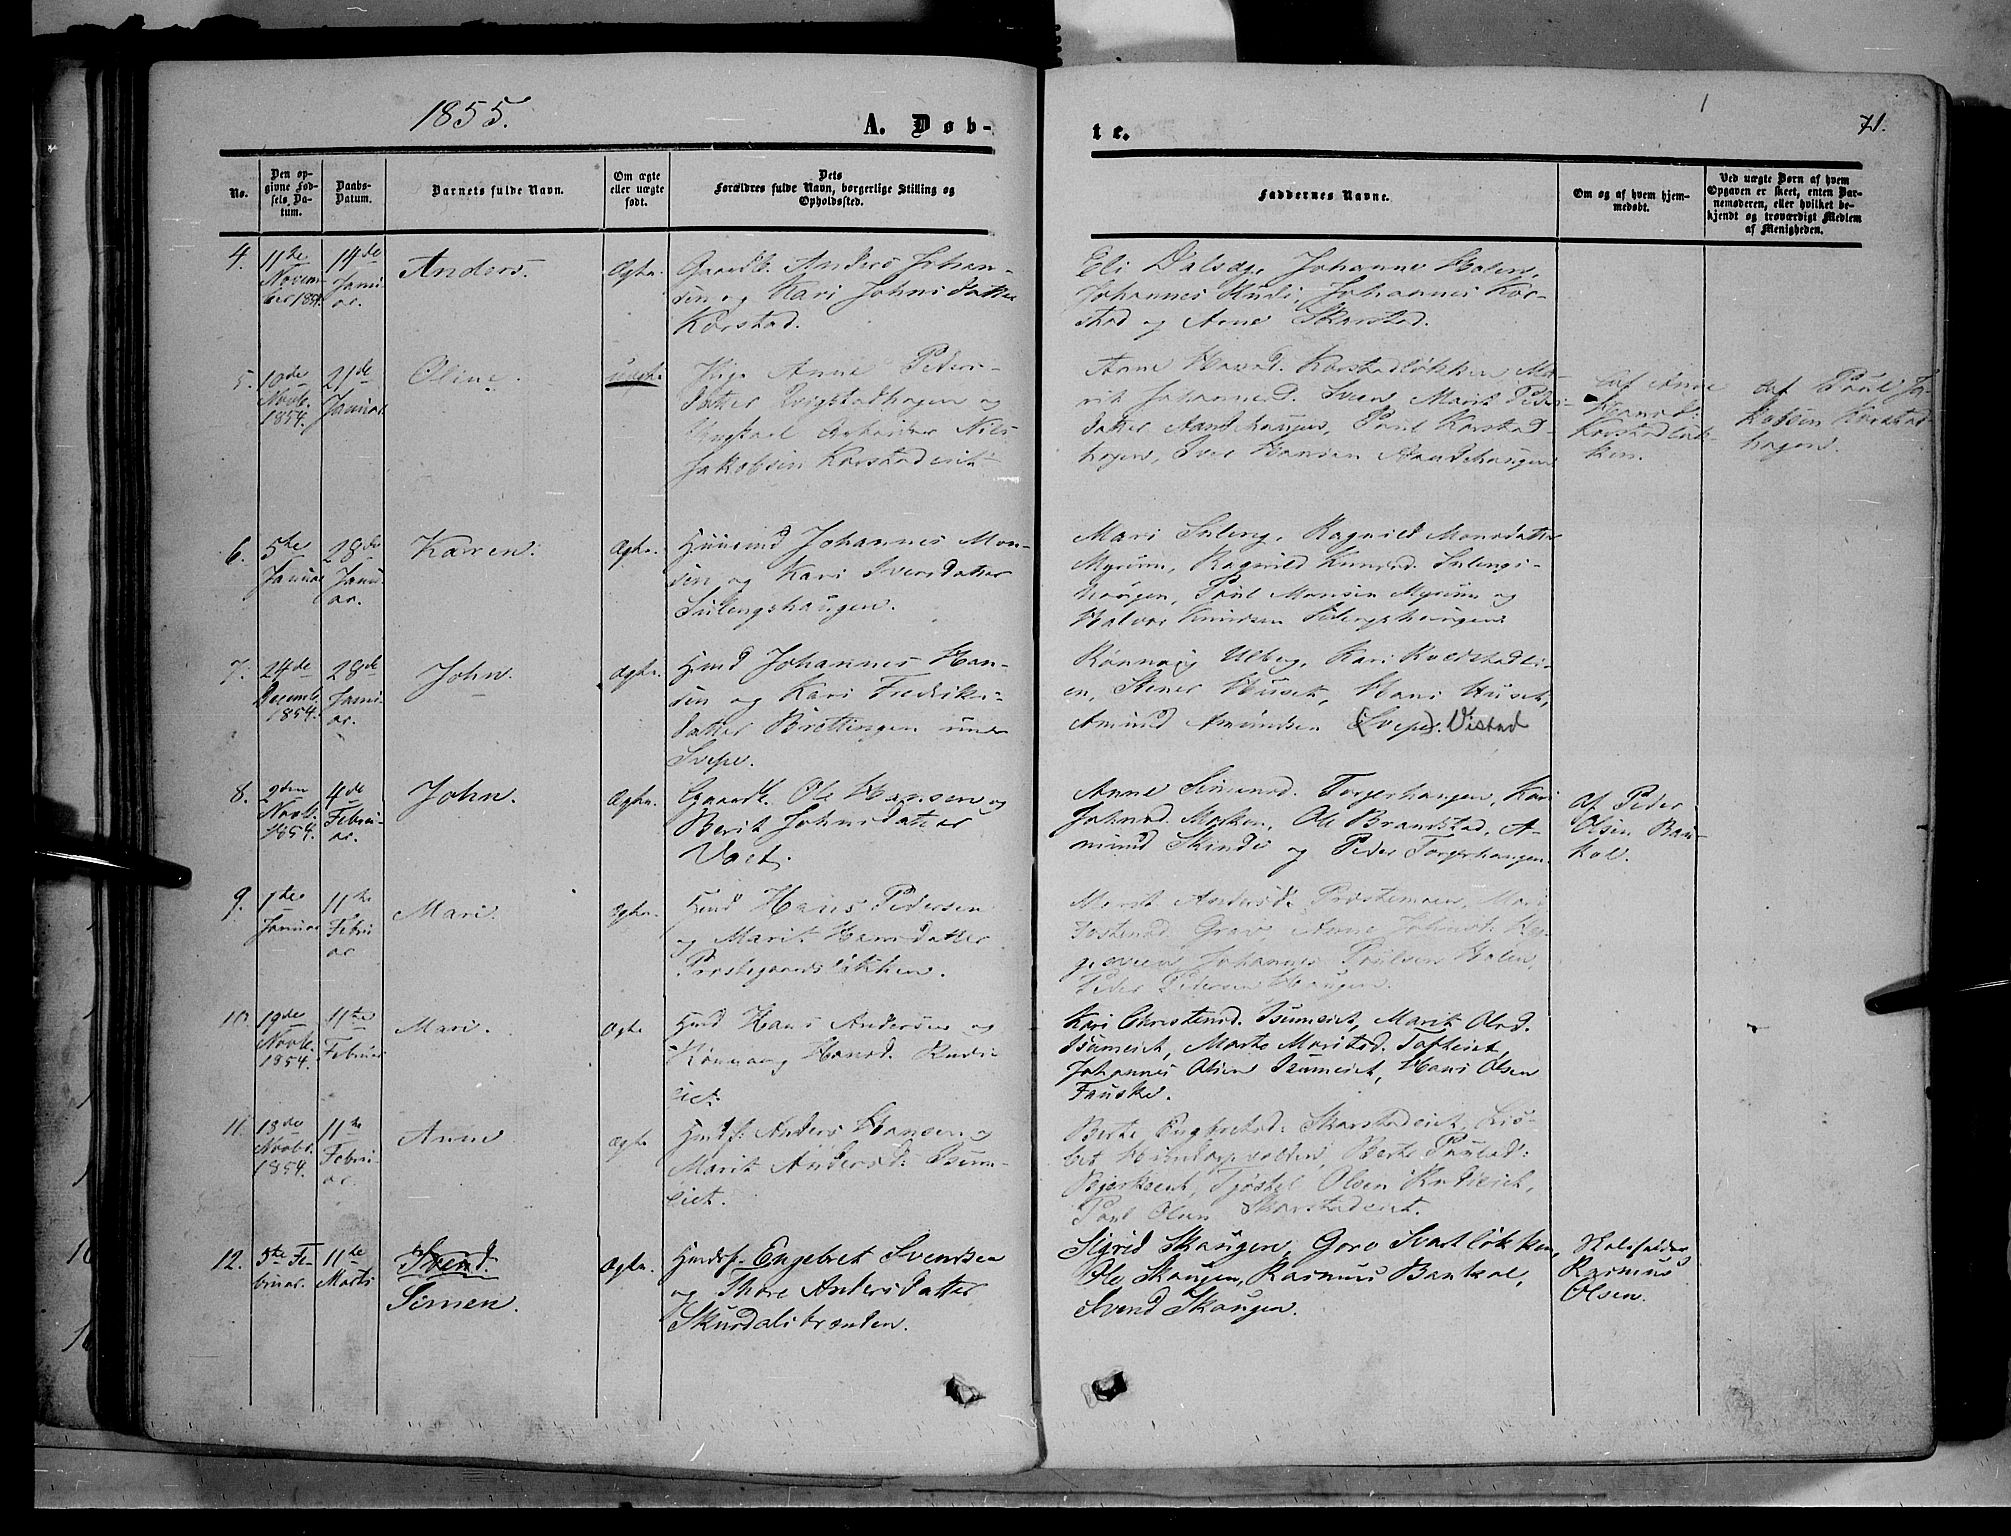 1855.
A. Døb-
te.
71.
No.
Den op-
givne Fød-
sels Da-
tum.
Daabs-
Datum.
Barnets fulde Navn.
Om ægte
eller uægte
født.
Dets
Forældres fulde Navn, borgerlige Stilling og
Opholdssted.
Faddernes Navne.
Om og af hvem hjem-
medøbt.
Ved uægte Børn af hvem
Opgaven er skeet, enten Bar-
nemoderen, eller hvilket be-
kjendt og troværdigt Medlem
af Menigheden.
4.
11te
Novem-
ber 1854.
14de
Janu-
ar.
Anders.
Ægte.
Gaardb. Anders Johan-
sen og Kari Johnsdatter
Korstad.
Eli Dalsøe, Johanne Holen,
Johannes Rudi, Johannes Kor-
stad og Arne Skarstad.
5.
10de
Novb.
1854.
21de
Januar
Oline.
uægte
Pige Anne Peders-
datter
og
Ungkarl Arbeider Nils
Jakobsen Korstadeiet
Anne Hansd. Korstadløkken, Ma-
rit Johannesd. Sveen, Marit Peders-
datter Sandehaugen, Paul Korstad-
hagen, Iver Hansen Sandehaugen
af Anne
Hansd.
Korstadløk-
ken.
af Paul Ja-
kobsen Korstad-
hagen.
6.
5te
Januar
28de
Janu-
ar.
Karen.
Ægte.
Huusmd Johannes Mon-
sen og Kari Iversdatter
Sulengshaugen.
Mari Suleng, Ragnild Monsdatter
Myrum, Ragnild Knudsd. Sulengs-
haugen, Paul Monsen Myrum og
Halvor Knudsen Sulengshaugen
7.
24de
Decemb.
1854.
28de
Janu-
ar.
John.
Ægte.
Hmd Johannes Han-
sen og Kari Fredriks-
datter Brættingen under
Svepe.
Rønnaug Ulberg, Kari Kvedstadli-
en, Stener Huset, Hans Huset,
Amund Amundsen (Svepe). Vistad
8.
2den
Novb.
1854.
4de
Febru-
ar.
John.
Ægte.
Gaardb. Ole Hansen og
Berit Johnsdatter
Voet.
Anne Simensd. Torgerhaugen, Kari
Johnsd. Moeken, Ole Brandstad, A-
mund Skinde og Peder Torgerhaugen.
af Peder
Olsen Ban-
kol.
9.
1ste
Januar
11te
Febru-
ar
Mari.
Ægte.
Hmd Hans Pedersen
og Marit Hansdatter
Prestegaardsløkken.
Marit Andersd. Prestemoen, Mari
Torstensd. Grav, Anne Johnsd.
Johannes Poulsen Holen,
Peder Pedersen Haugen.
10.
19de
Novb.
1854.
11te
Februar
Mari.
Ægte
Hmd Hans Andersen og
Rønnaug Hansd. Rudi-
eiet.
Kari Christensd. Isumeiet, Marit Olsd.
Isumeiet, Marte Mariusd. Tofteiet,
Johannes Olsen Isumeiet, Hans Olsen
Fauske.
11.
18de
Novbr.
1854.
11te
Febru-
ar.
Anne
Ægte
Hmdsf. Anders Hansen og
Marit Andersd. Isum-
eiet.
Berte Engebretsd. Skarstadeiet, Lis-
bet Berte Paulsd.
Bjerkeeiet, Tjøstel Olsen Rudieiet,
Paul Olsen Skarstadeiet.
12.
5te Fe-
bruar.
11te
Marts
Svend.
Simen.
Ægte.
Hmdsf. Engebret Svendsen
og Thore Andersdatter
Skurdalsbrenden.
Sigrid Skaugen, Goro Svartløkken,
Ole Skaugen, Rasmus Bankol,
Svend Skaugen.
Skoleholder
Rasmus
Olsen.